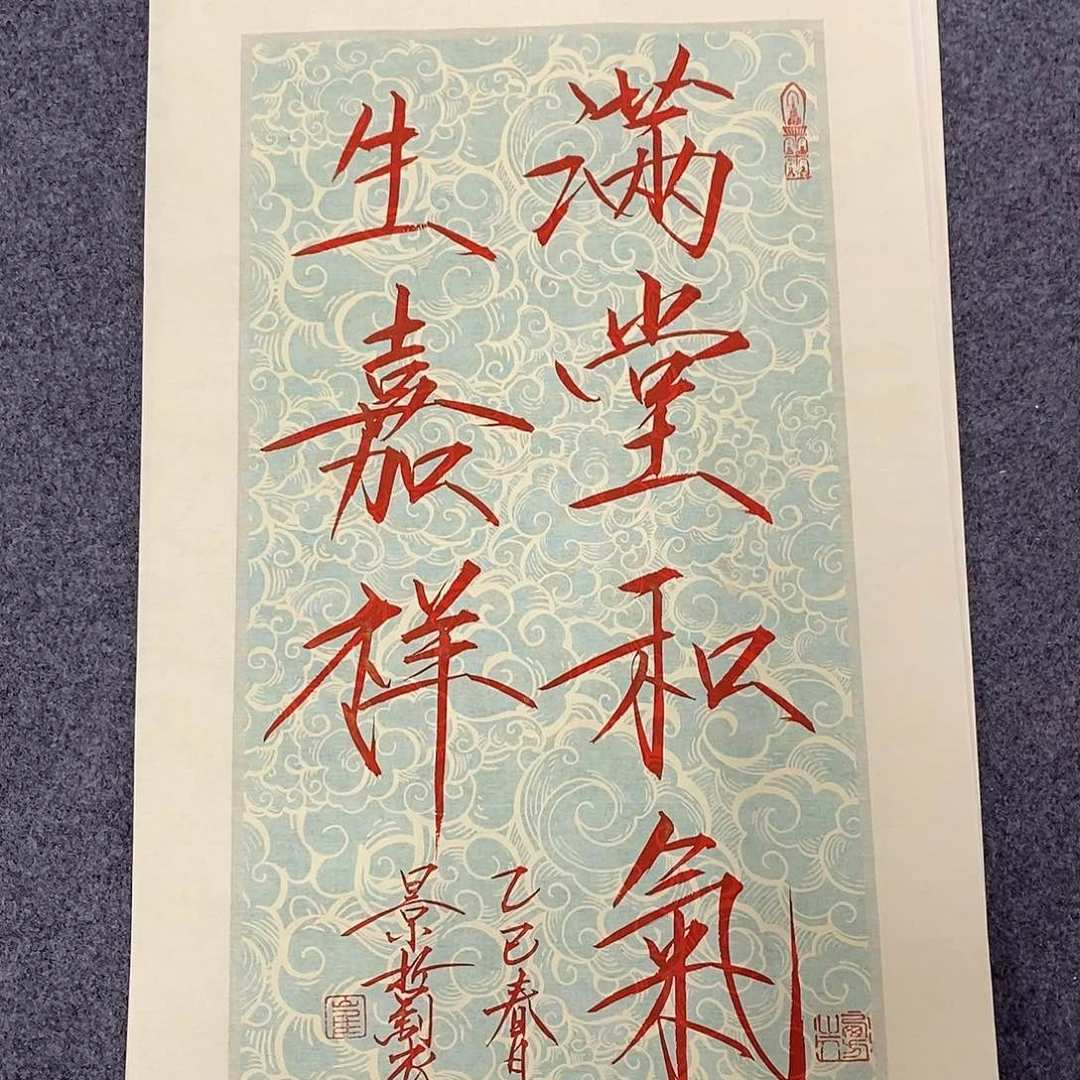 滿堂和氣
生嘉祥
乙巳春日
景